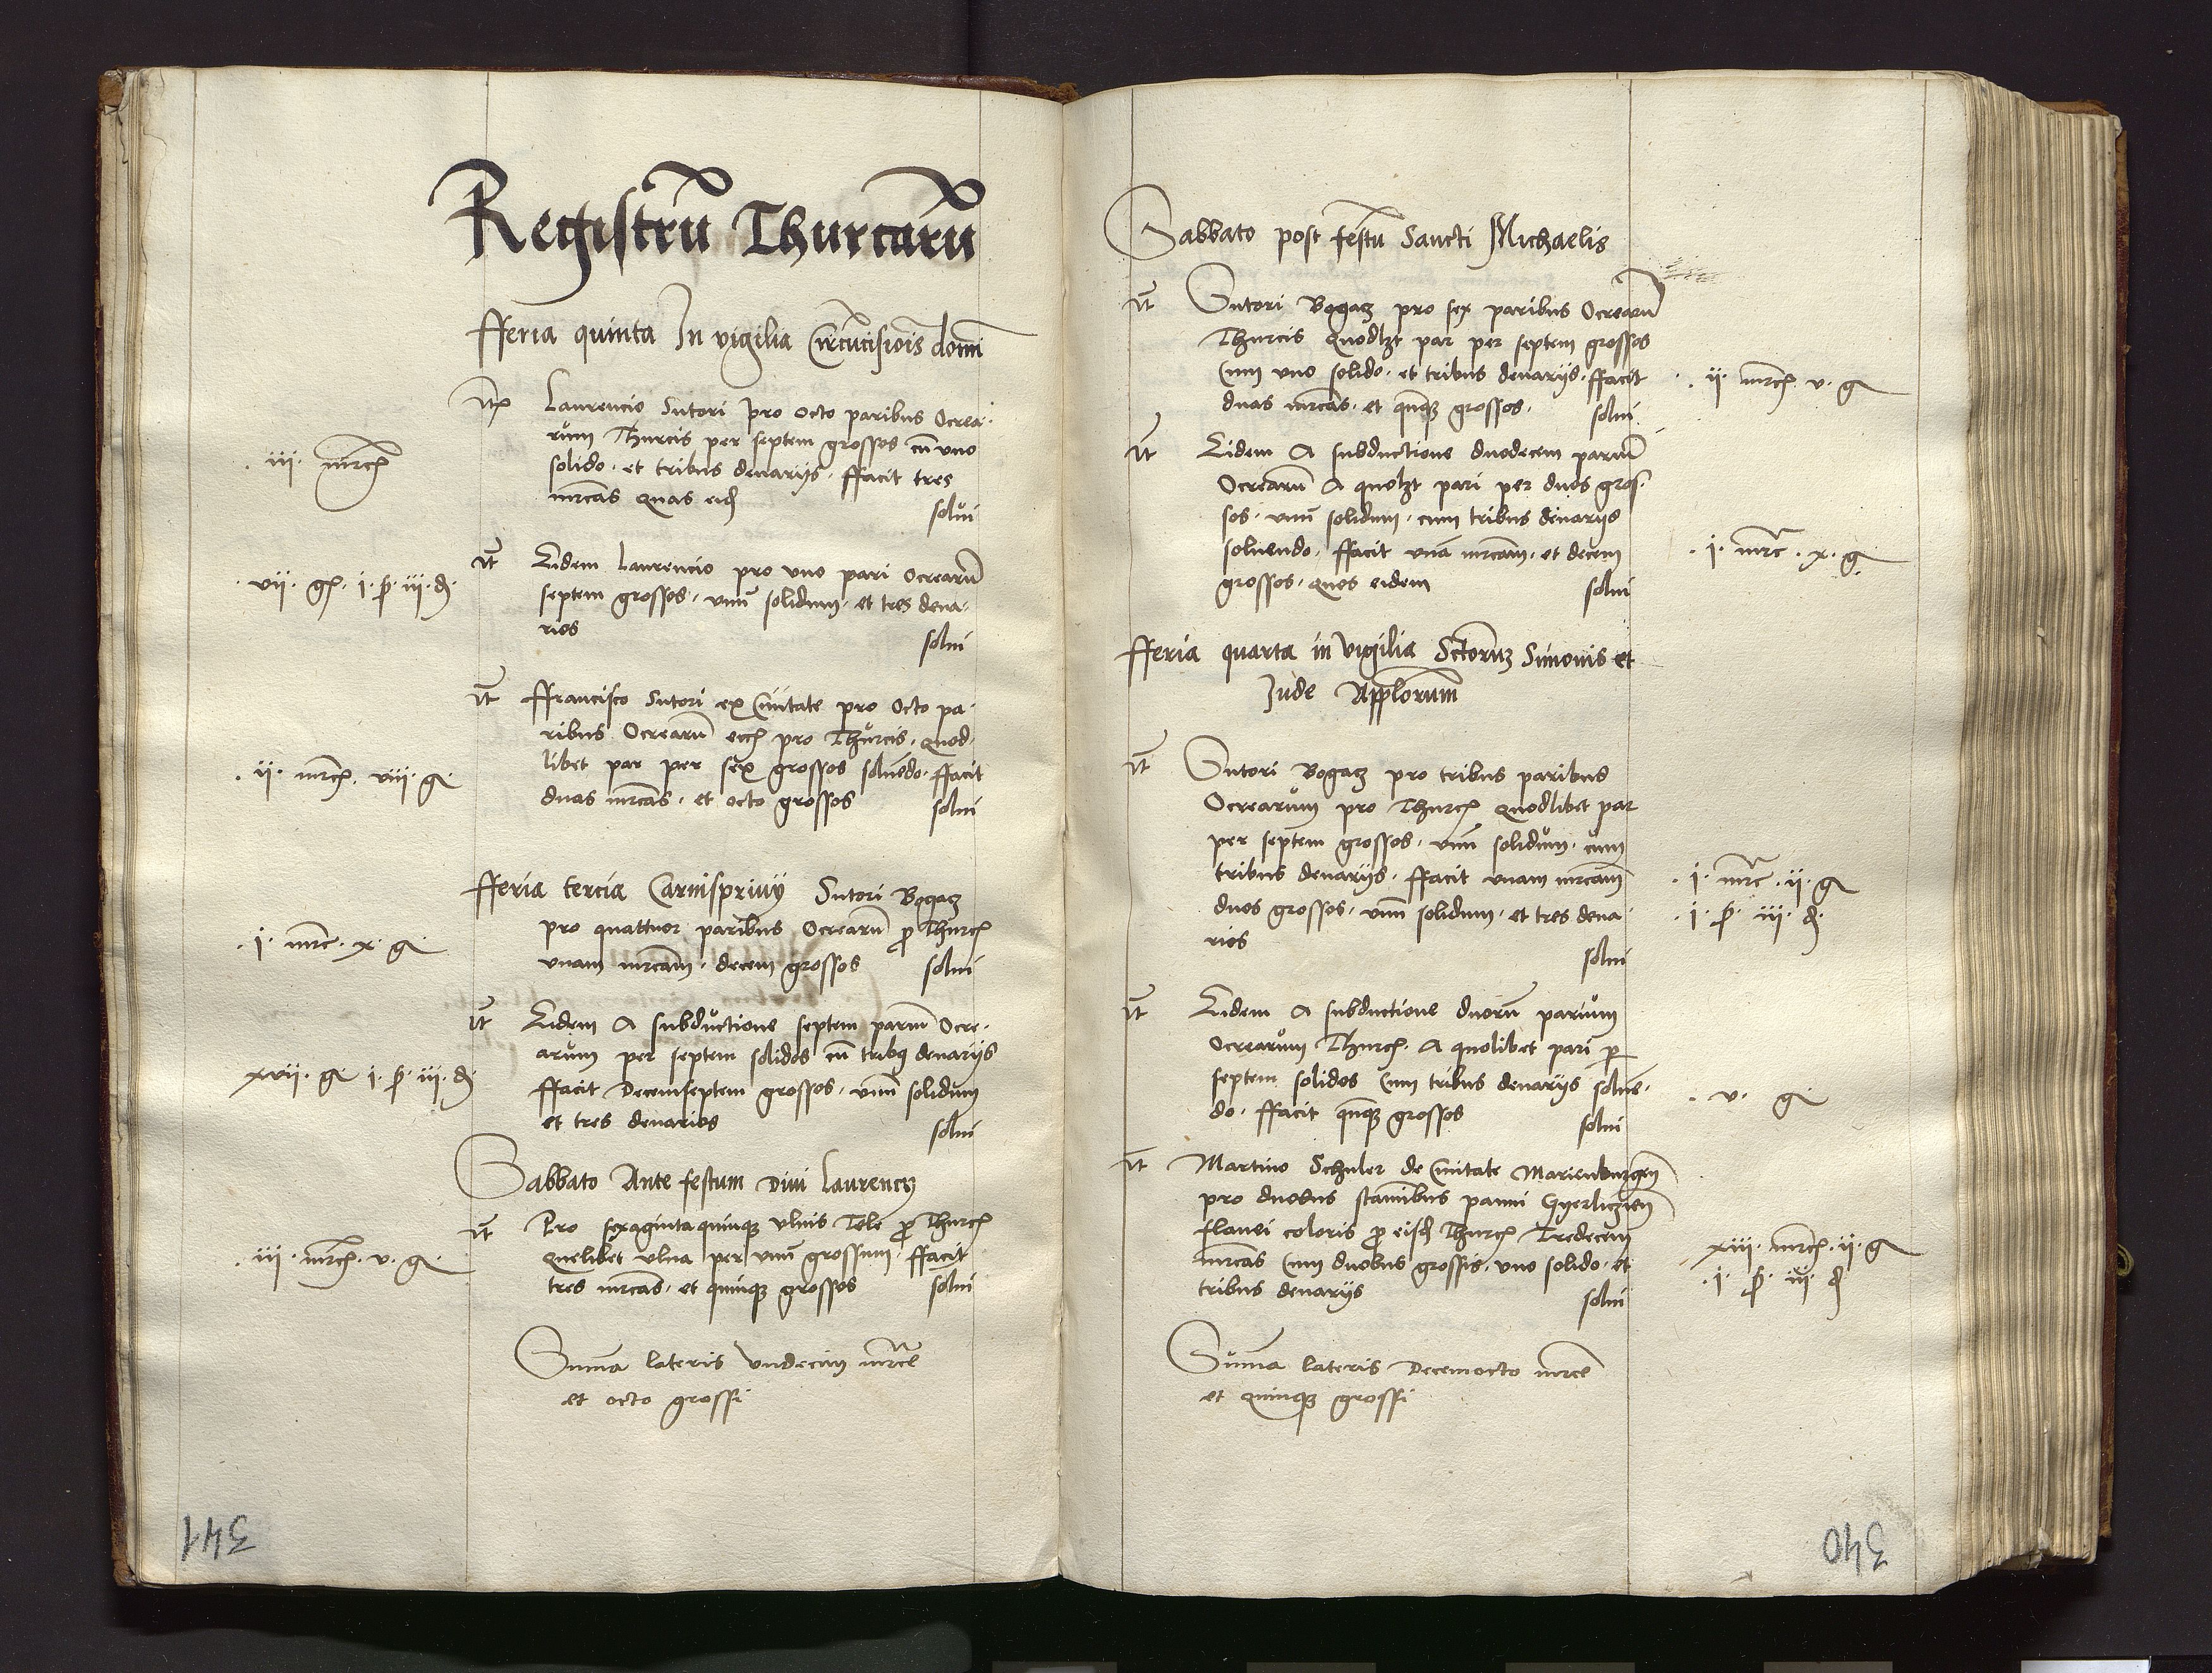 Registrū Thurcarū
fferia quinta In vigilia Circūcisiōis domī
Laurencio Sutori pro octo paribus Ocrea·
rum Thurcis per septem grossos cū uno
solido · et tribus denariis · ffacit tres
mrcas quas eid
solui
· iii · mrc
It Eidem Laurencio pro uno pari ocrearū
septem grossos · unū solidum · et tres dena·
rios
solui
· vii · g · i · ß · iii · d ·
It ffrancisco Sutori ex Civitate pro octo pa·
ribus Ocrearū pro Thurcis · quod·
libet par per sex grossos soluēdo · ffacit
duas mrcas · et octo grossos solui
· ii · mrc · viii · g ·
fferia tercia Carnispriuij Sutori Bogacz
pro quattuor paribus Ocrearū p Thurc
unam mrcam · decem grossos solui
· i · mrc · x · g ·
It Eidem A subductione septem pariū Ocre·
arum per septem solidos cū tribq denariis
ffacit Decemseptem grossos · unū solidum
et tres denarios
solui
xvii · g · i · ß · iii · d ·
Sabbato Ante festum Divi Laurency
It Pro sexagintaquinque ulnis Tele p Thurc
quelibet ulna per unū grossum · ffacit
tres mrcas · et quinque grossos solui
· iii · mrc · v · g ·
Summa lateris undecim mrce
et octo grossi
341
Sabbato post festū Sancti Michaelis
It Sutori Bogacz pro sex paribus Ocrearū
Thurcis Quodlzt par per septem grossos
Cum uno solido · et tribus denariis · ffacit
duas mrcas · et qnqz grossos · solui
· ii · mrc · v · g
It Eidem A subductione duodecem parium
Ocrearū A quolzt pari per duos gros·
sos · unū solidum · cum tribus denariis
soluendo · ffacit unā mrcam · et decem
grossos · quos eidem solui
· i · mrc · x · g ·
fferia quarta in vigilia Sctoruz Simonis et
Jude Applorum
It Sutori Bogacz pro tribus paribus
Ocrearum pro Thurc quodlibet par
per septem grossos · unū solidum · cum
tribus denariis · ffacit unam mrcam
duos grossos · unū solidum · et tres dena·
rios
solui
· i · mrc · ii · g
· i · ß · iii · d ·
It Eidem A subductione duorū parium
ocrearum Thurc · A quolibet pari p
septem solidos Cum tribus denariis soluē·
do · ffacit qnqz grossos solui
· v · g
It Martino Schuler de Civitate Marienburgen
pro duobus staminibus panni Gyerliczien
flavei coloris p eisd Thurc Tredecem
mrcas Cum duobus grossis · uno solido · et
tribus denariis
solui
xiii · mrc · ii · g
· i · ß · iii · d
Summa lateris Decemocto mrce
et quinqz grossi
340